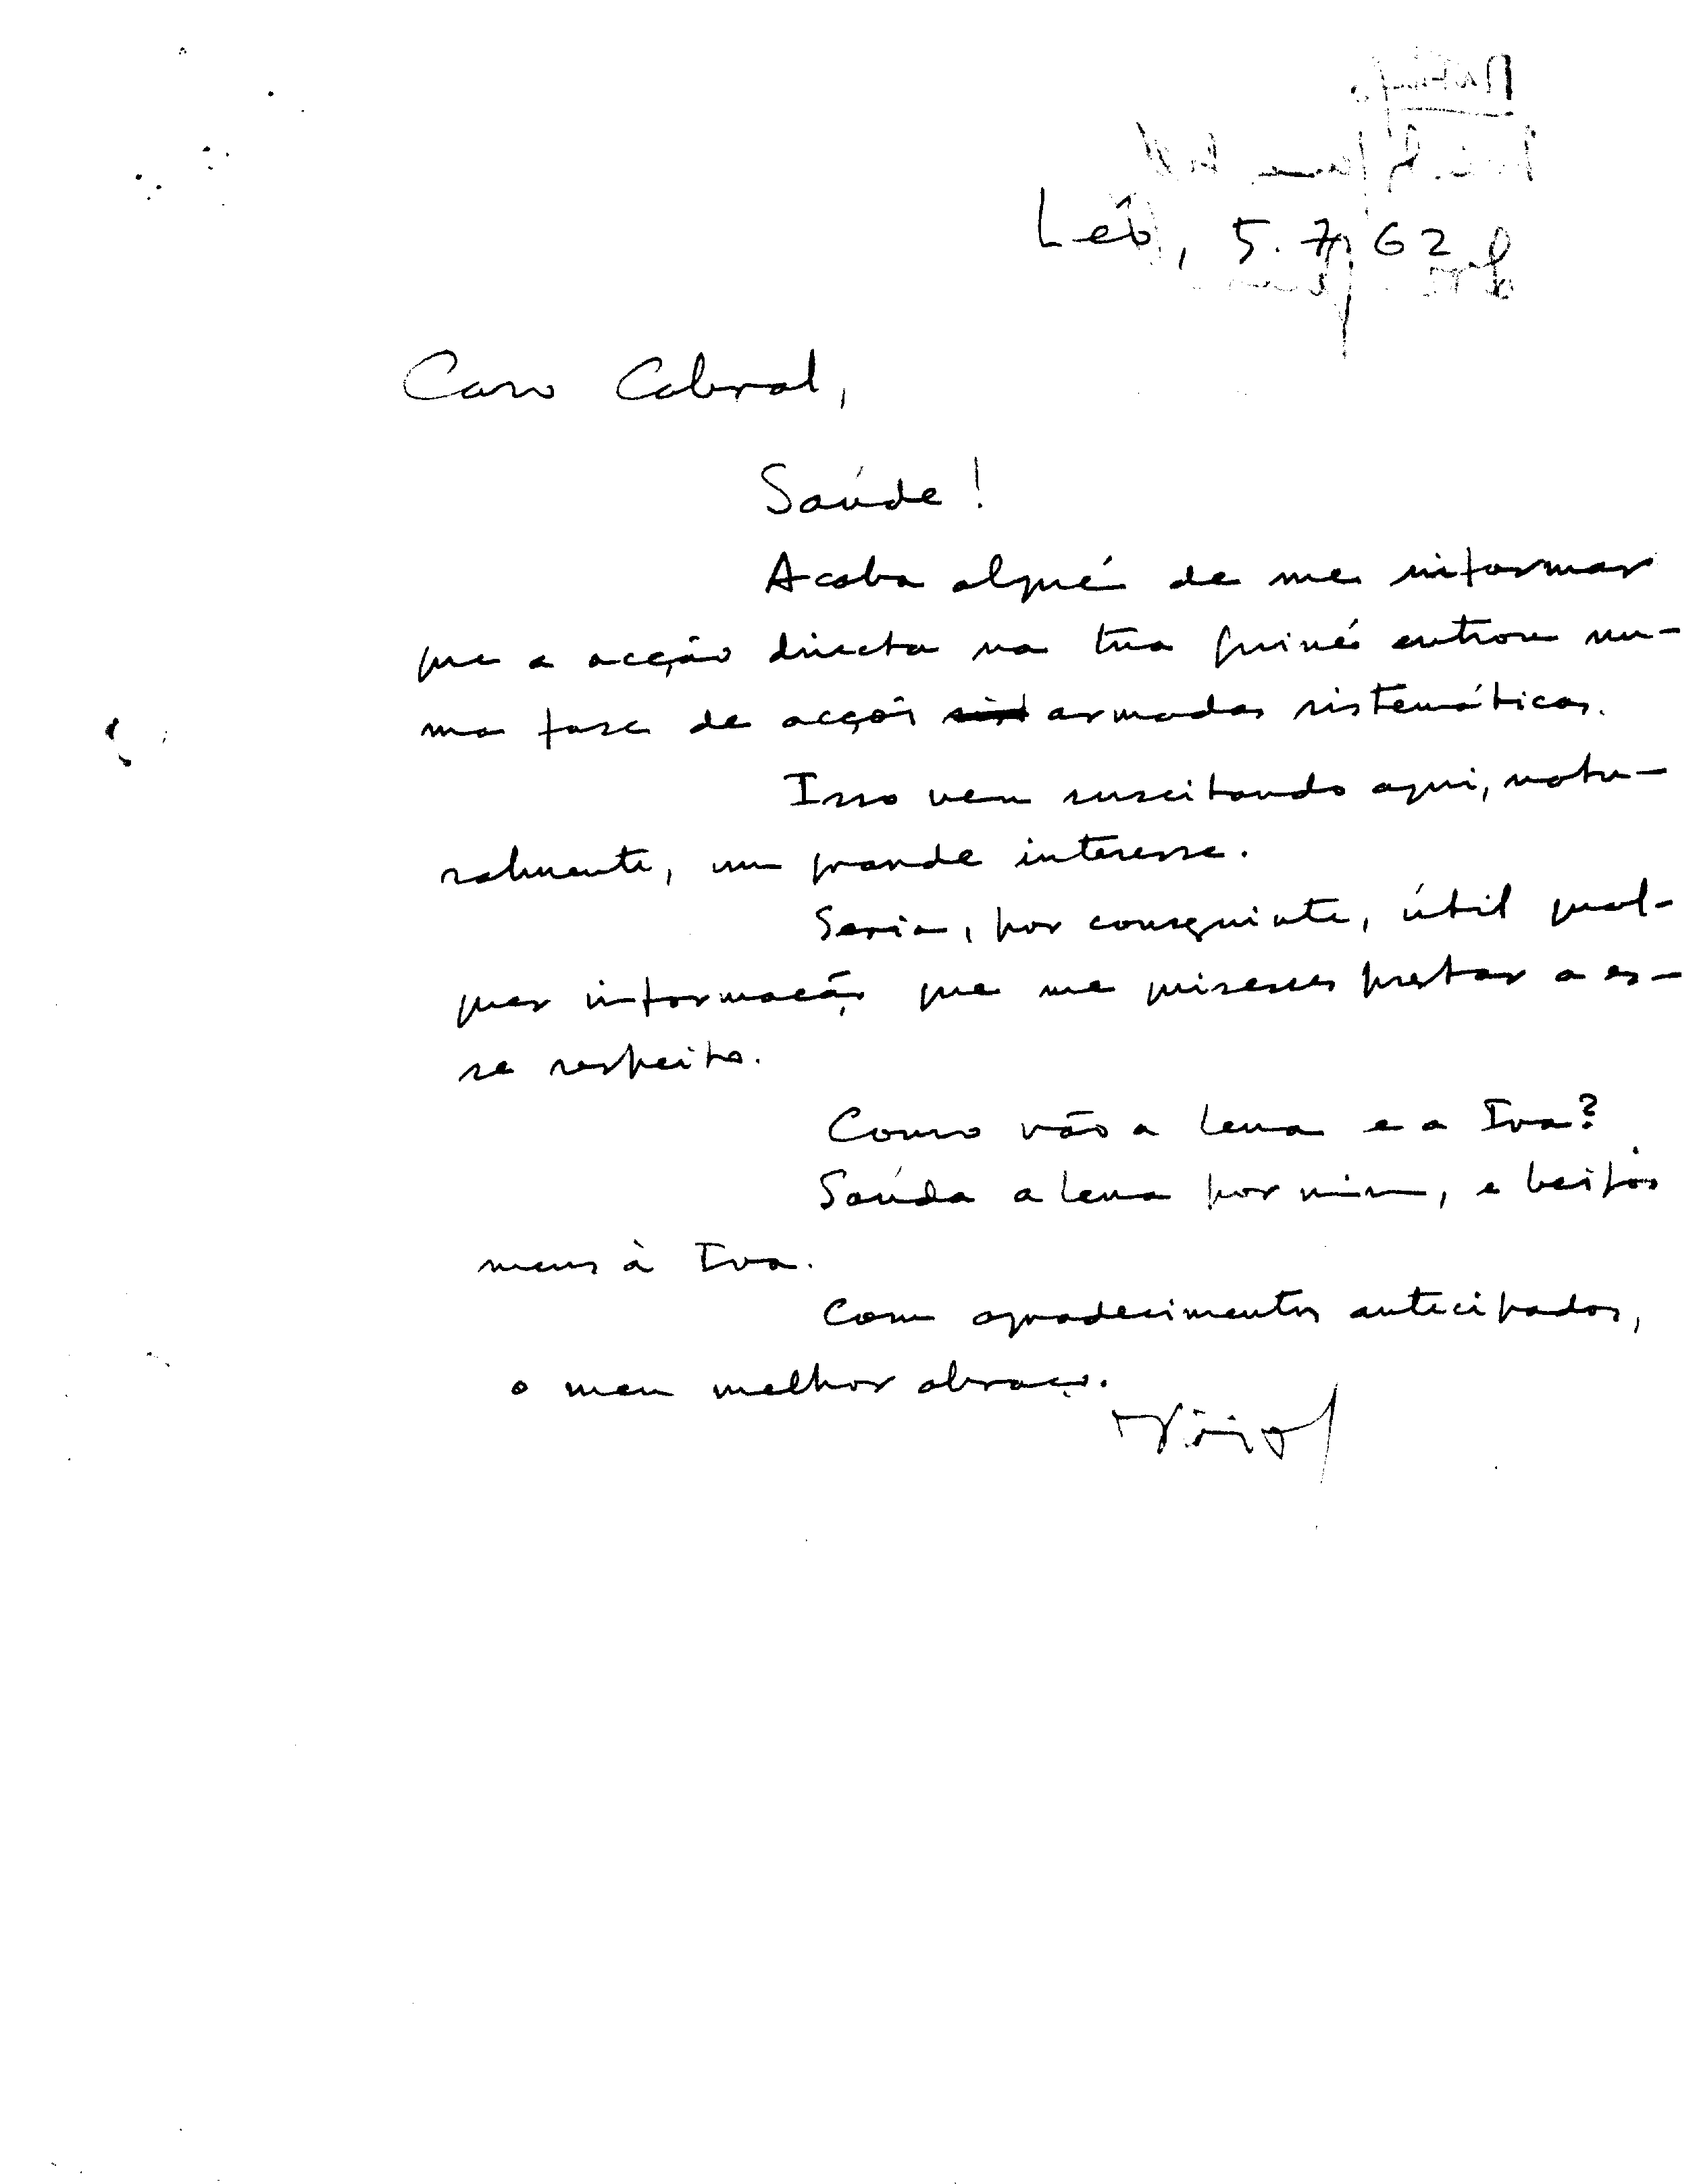 Leo, 5.7.62
Caro Cabral,
Saúde!
Acaba alguém de me informar
que a acção directa na tua Guiné entrou nu-
ma fase de acções sist armadas sistemáticas.
Isso vem suscitando aqui, natu-
ralmente, um grande interesse.
Seria, por conseguinte, útil qual-
quer informação que me quisesses prestar a es-
se respeito.
Como vão a Lena e a Iva?
Saúda a Lena por mim, e beijos
meus à Iva.
Com agradecimentos antecipados,
o meu melhor abraço.